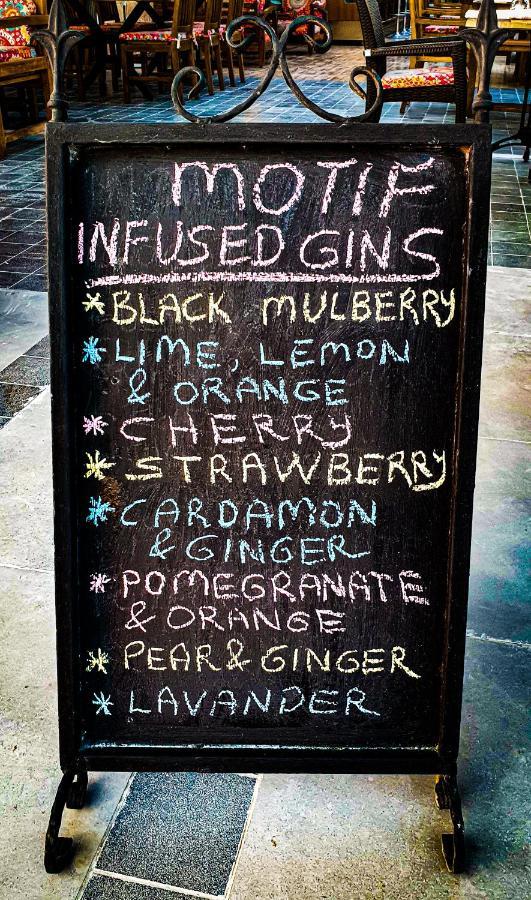 MOTIF
INFUSED GINS
* BLACK MULBERRY
* LIME, LEMON
& ORANGE
* CHERRY
* STRAWBERRY
* CARDAMON
& GINGER
* POMEGRANATE
& ORANGE
* PEAR & GINGER
* LAVANDER